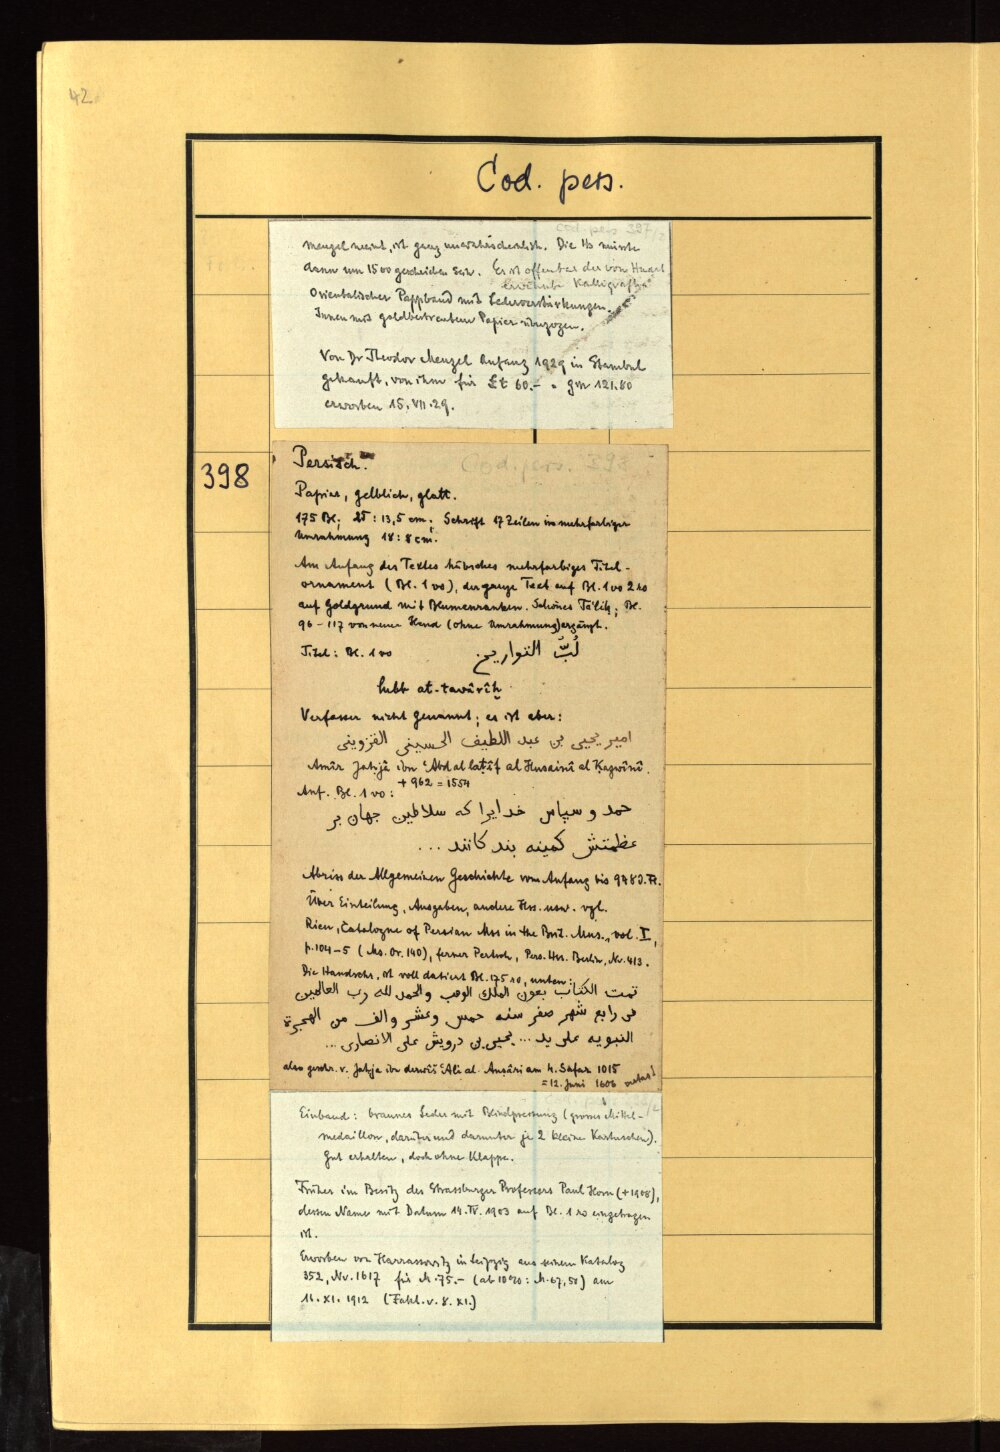 42
Cod. pers.
cod. pers 397/2
Menzel meint, ist ganz unwahrscheinlich. Die Hs müsste
dann um 1500 geschrieben sein. Er ist offenbar der von Huart
erwähnte Kalligraph.
Orientalischer Pappband mit Lederverstärkungen.
Innen mit goldbestreutem Papier überzogen.
Von Dr Theodor Menzel Anfang 1929 in Stambul
gekauft, von ihm für £t 60.- = gm 121.80
erworben 15.VII.29.
398
Persisch.
Cod. pers. 398
Papier, gelblich, glatt.
175 Bl; 25 : 13,5 cm; Schrift 17 Zeilen in mehrfarbiger
Umrahmung 18 : 8 cm.
Am Anfang des Textes hübsches mehrfarbiges Titel-
ornament (Bl. 1 vo), der ganze Text auf Bl. 1 vo 2 ro
auf Goldgrund mit Blumenranken. Schönes Ta'lik; Bl.
96 - 117 von neuer Hand (ohne Umrahmung) ergänzt.
Titel: Bl. 1 vo لُبّ التواريخ
lubb at-tavârîḫ
Verfasser nicht genannt; es ist aber:
امير يحيى بن عبد اللطيف الحسينى القزوينى
Amîr Jaḥjâ ibn ʿAbd al laṭîf al Ḥusainî al Ḳazwînî.
+ 962 = 1554
Anf. Bl. 1 vo:
حمد و سپاس خدايرا كه سلاطين جهان بر
عظمتش كمينه بند كانند ...
Abriss der Allgemeinen Geschichte vom Anfang bis 948 d. H.
Über Einteilung, Ausgaben, andere Hss. usw. vgl.
Rieu, Catalogue of Persian Mss in the Brit. Mus., vol. I,
p. 104-5 (Ms. Or. 140), ferner Pertsch, Pers. Hss. Berlin, Nr. 413.
Die Handschr. ist voll datiert Bl. 175 ro, unten:
تمت الكتاب بعون الملك الوهب والحمد لله رب العالمين
فى رابع شهر صفر سنه خمس وعشر والف من الهجرة
النبويه على يد ... يحيى بن درويش على الانصارى ...
also geschr. v. Jaḥja ibn derwîš ʿAli al-Anṣâri am 4. Safar 1015
= 12. Juni 1606
Einband: braunes Leder mit Blindpressung (grosses Mittel-
medaillon, darüber und darunter je 2 kleine Kartuschen).
Gut erhalten, doch ohne Klappe.
Früher im Besitz des Strassburger Professors Paul Horn (+ 1908),
dessen Name mit Datum 14.IV.1903 auf Bl. 1 ro eingetragen
ist.
Erworben von Harrassowitz in Leipzig aus seinem Katalog
352, Nr. 1617 für M. 75.- (ab 10%: M. 67,50) am
11.XI.1912 (Fakt. v. 8. XI.)